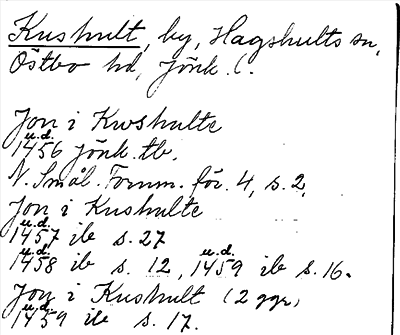 Kushult, by, Hagshults sn,
Östbo hd, Jönk. l.
Jon i Kwshulte
u.d.
1456 Jönk. tb.
N. Smål. Fornm. för. 4, s. 2.
Jon i Kushulte
u.d.
1457 ib s. 27
u.d. u.d.
1458 ib s. 12, 1459 ib s. 16.
Jon i Kushult (2 ggr)
u.d.
1459 ib s. 17.